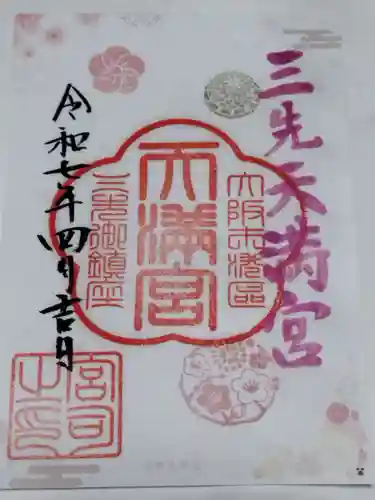 三先天満宮
大阪市港區
天満宮
三先御鎮座
令和七年四月吉日
宮司之印